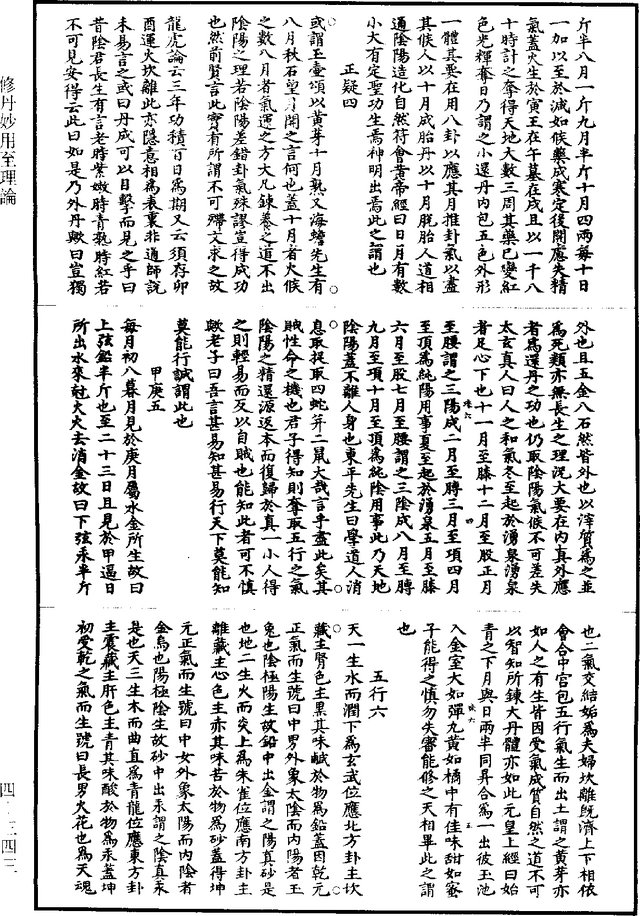 斤半八月一斤九月半斤十月四兩每十日
一加以至於減如候藥成寒定後開應失精
氣蓋火生於寅王在午墓在戌且以一千八
十時計之奪得天地大數三周其藥已變紅
色光輝奪日乃謂之小還丹內包五色外形
一體其要在用八卦以應其月推卦氣以盡
其候人以十月成胎丹以十月脫胎人道相
通陰陽造化自然符會黃帝經曰日月有數
小大有定聖功生焉神明出焉此之謂也
正疑四
或謂玉壺頌以黃芽十月熟又海蟾先生有
八月秋石望月開之言何也蓋十月者火候
之數八月者氣運之方大凡鍊養之道不出
陰陽之理若陰陽差錯卦氣殊謬豈得成功
也然前賢言此實有所謂不可殢文求之故
龍虎論云三年功積百日為期又云須存卯
酉運火坎離此亦隱意相為表裏非遇師說
未易言之或曰丹成可以目擊而見之乎曰
昔陰君長生有言老時紫嫩時青熟時紅若
不可見安得云此曰如是乃外丹歟曰豈獨
外也且五金八石然皆外也以滓質為之並
為死類亦無長生之理況大要在內真外應
者為還丹之功也仍取陰陽氣候不可差失
太玄真人曰人之和氣冬至起於湧泉湧泉
者足心下也十一月至膝十二月至股正月
至腰謂之三陽成二月至膊三月至項四月
至頂為純陽用事夏至起於湧泉五月至膝
六月至股七月至腰謂之三陰成八月至膊
九月至項十月至頂為純陰用事此乃天地
陰陽蓋不離人身也東平先生曰學道人消
息取捉取四蛇并二鼠大哉言乎盡此矣其
賊性命之機也君子得知則奪取五行之氣
陰陽之精還源返本而復歸於真一小人得
之則輕易而反以自賊也能知此者可不慎
歟老子曰吾言甚易知甚易行天下莫能知
莫能行誠謂此也
甲庚五
每月初八暮月見於庚月屬水金所生故曰
上弦鉛半斤也至二十三日且見於甲逼日
所出水來尅火火去消金故曰下弦汞半斤
也二氣交結姤為夫婦坎離旣濟上下相依
會合中宮包五行氣生而出土謂之黃芽亦
如人之有生皆因受氣成質自然之道不可
以智知所鍊大丹體亦如此元皇上經曰始
青之下月與日兩半同昇合為一出彼玉池
入金室大如彈丸黃如橘中有佳味甜如蜜
子能得之慎勿失審能修之天相畢此之謂
也
五行六
天一生水而潤下為玄武位應北方卦主坎
藏主腎色主黑其味鹹於物為鉛蓋因乾元
正氣而生號曰中男外象太陰而內陽者玉
兔也陰極陽生故鉛中出金謂之陽真砂是
也地二生火而炎上為朱雀位應南方卦主
離藏主心色主赤其味苦於物為砂蓋得坤
元正氣而生號曰中女外象太陽而內陰者
金烏也陽極陰生故砂中出汞謂之陰真汞
是也天三生木而曲直為青龍位應東方卦
主震藏主肝色主青其味酸於物為汞蓋坤
初受乾之氣而生號曰長男火花也為天魂
修丹妙用至理論
四·三四三